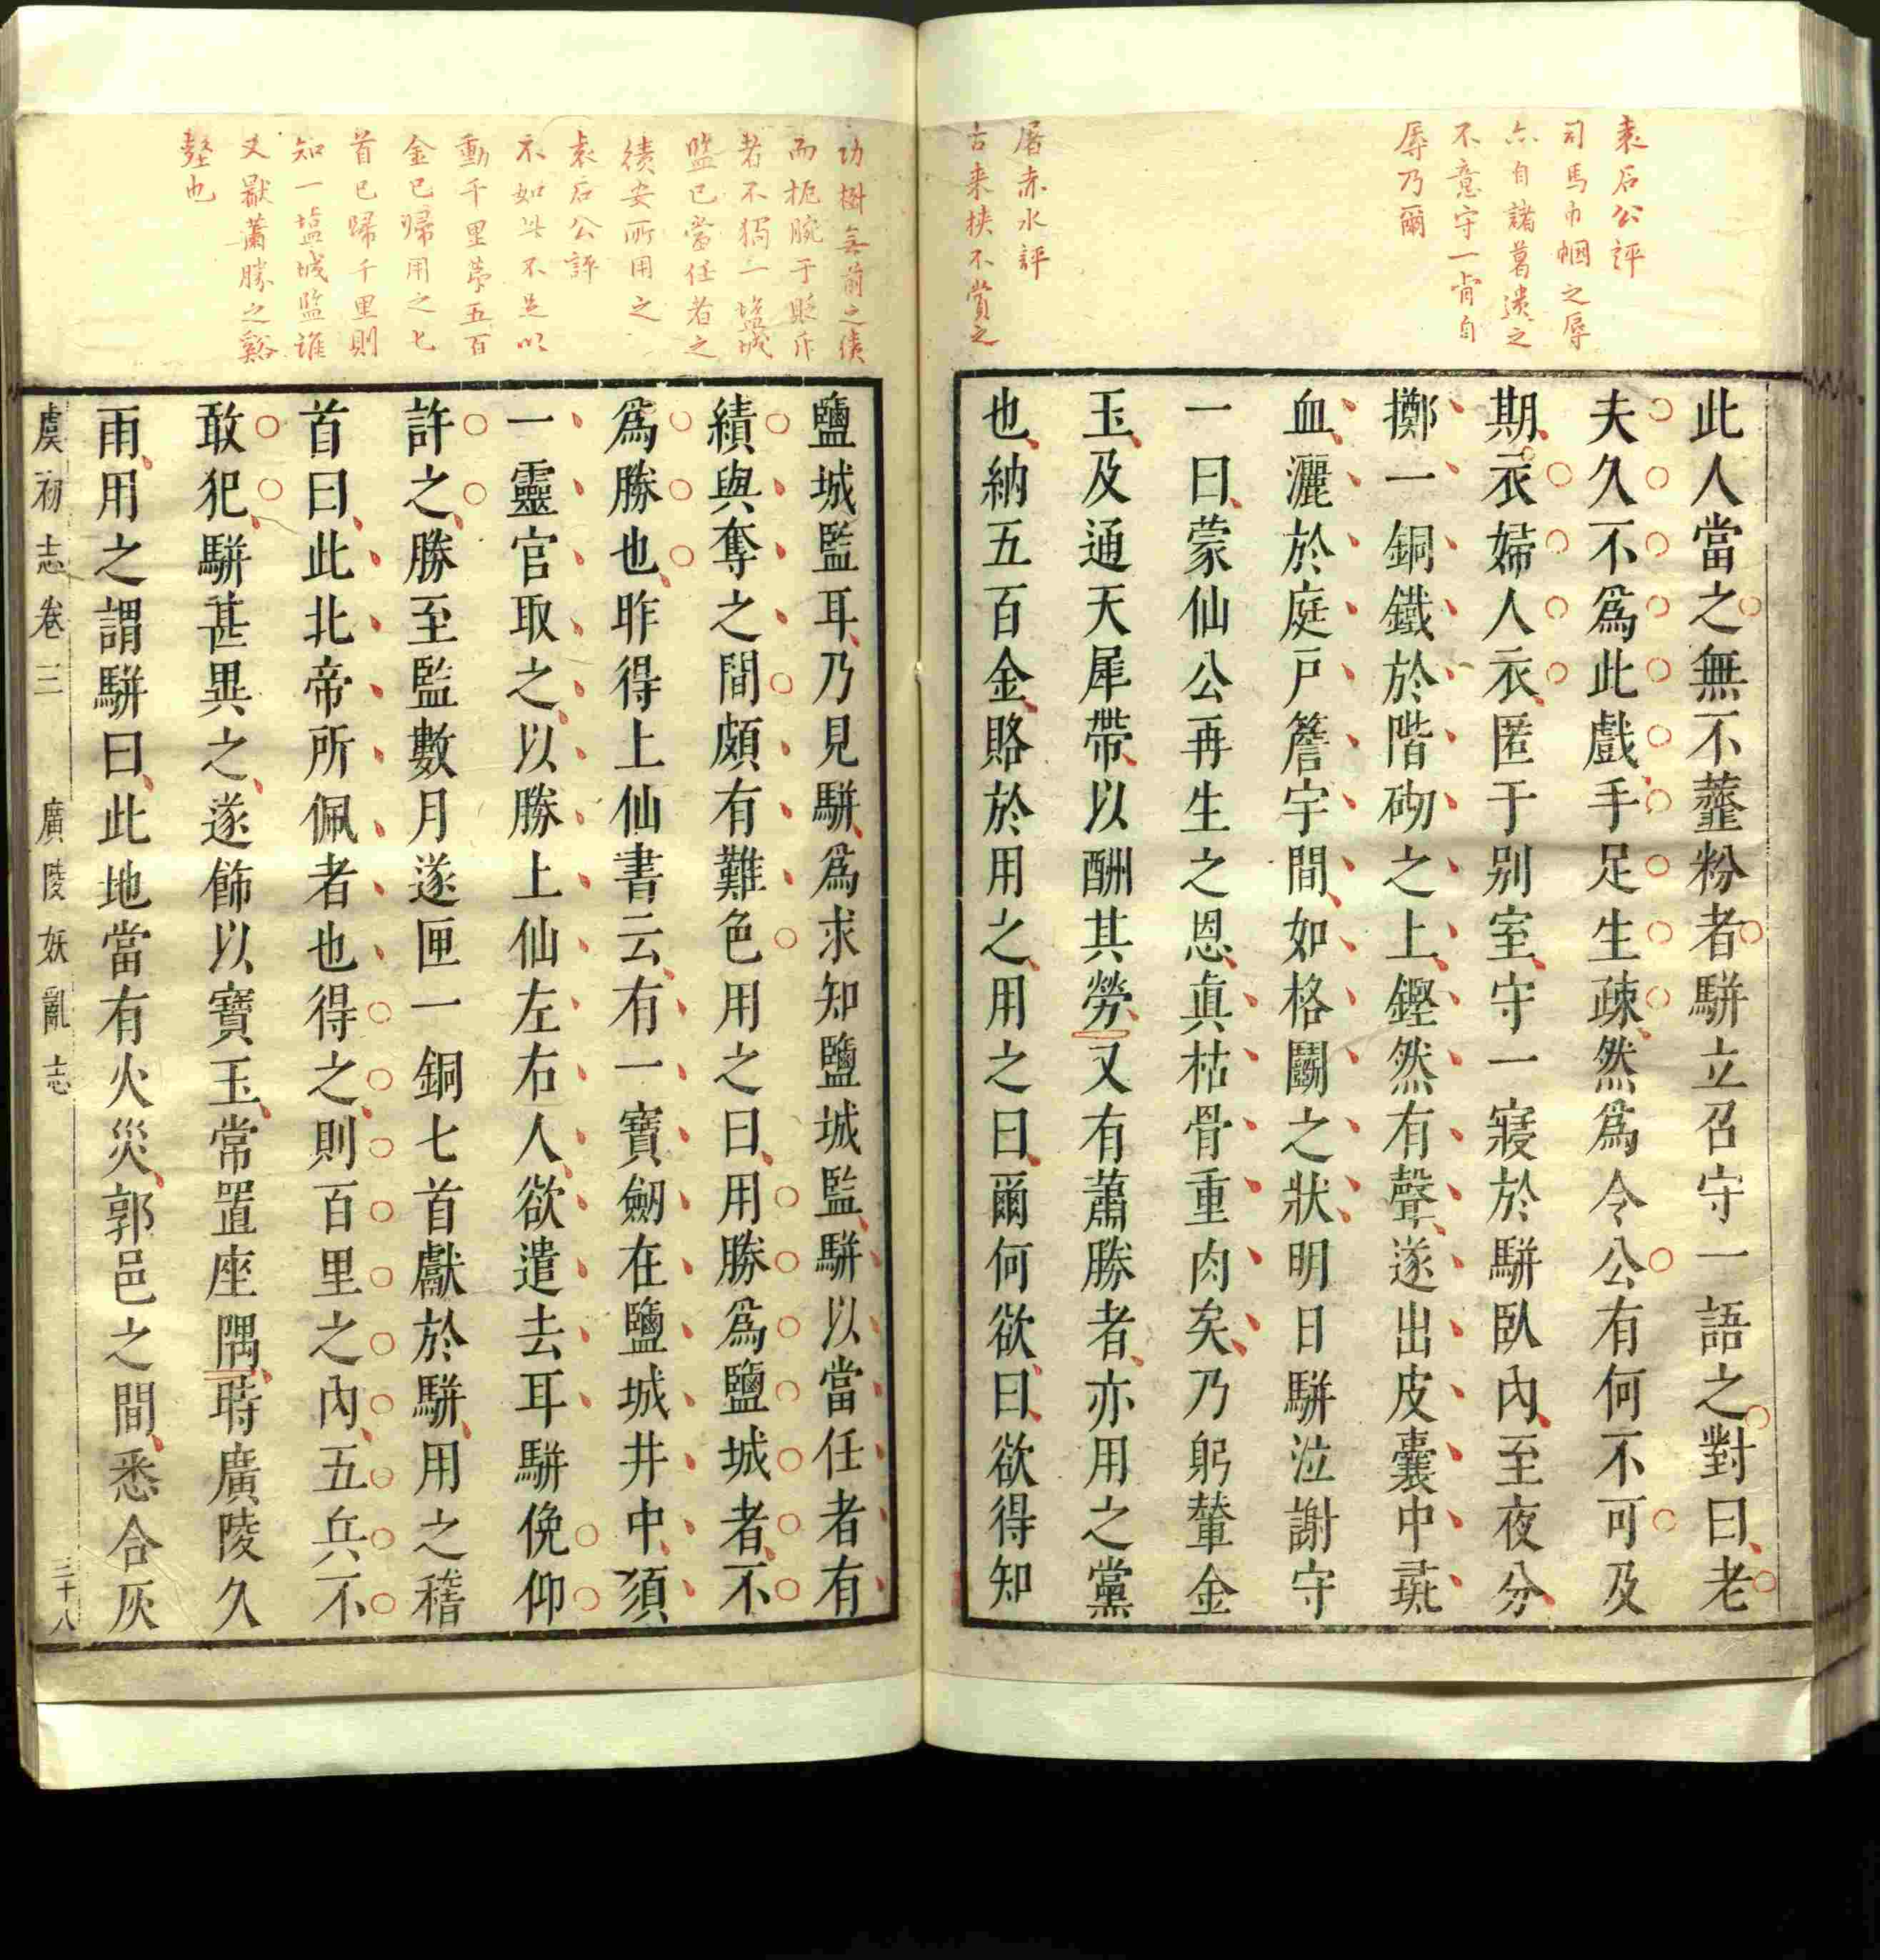 袁石公評
司馬巾幗之辱
亦自諸葛遺之
不意守一肯自
辱乃爾
屠赤水評
古来挾不賞之
此人當之無不虀粉者駢立召守一語之對曰老
夫久不爲此戲手足生疎然爲令公有何不可及
期衣婦人衣匿于别室守一寢於駢臥內至夜分
擲一銅鐵於階砌之上鏗然有聲遂出皮囊中彘
血灑於庭戸簷宇間如格鬭之狀明日駢泣謝守
一曰蒙仙公再生之恩真枯骨重肉矣乃躬輦金
玉及通天犀帶以酬其勞又有蕭勝者亦用之黨
也納五百金賂於用之用之曰爾何欲曰欲得知
功樹無前之績
而扼腕于貶斥
者不獨一塩城
監已當任者之
績安所用之
袁石公評
不如此不足以
動千里蓂五百
金已歸用之七
首已歸千里則
知一塩城監誰
又厭蕭勝之谿
壑也
鹽城監耳乃見駢爲求知鹽城監駢以當任者有
績與奪之間頗有難色用之曰用勝爲鹽城者不
爲勝也昨得上仙書云有一寶劒在鹽城井中須
一靈官取之以勝上仙左右人欲遣去耳駢俛仰
許之勝至監數月遂匣一銅七首獻於駢用之稽
首曰此北帝所佩者也得之則百里之內五兵不
敢犯駢甚異之遂飾以寶玉常置座隅時廣陵久
雨用之謂駢曰此地當有火災郭邑之間悉合灰
虞初志卷三 廣陵妖亂志 三十八